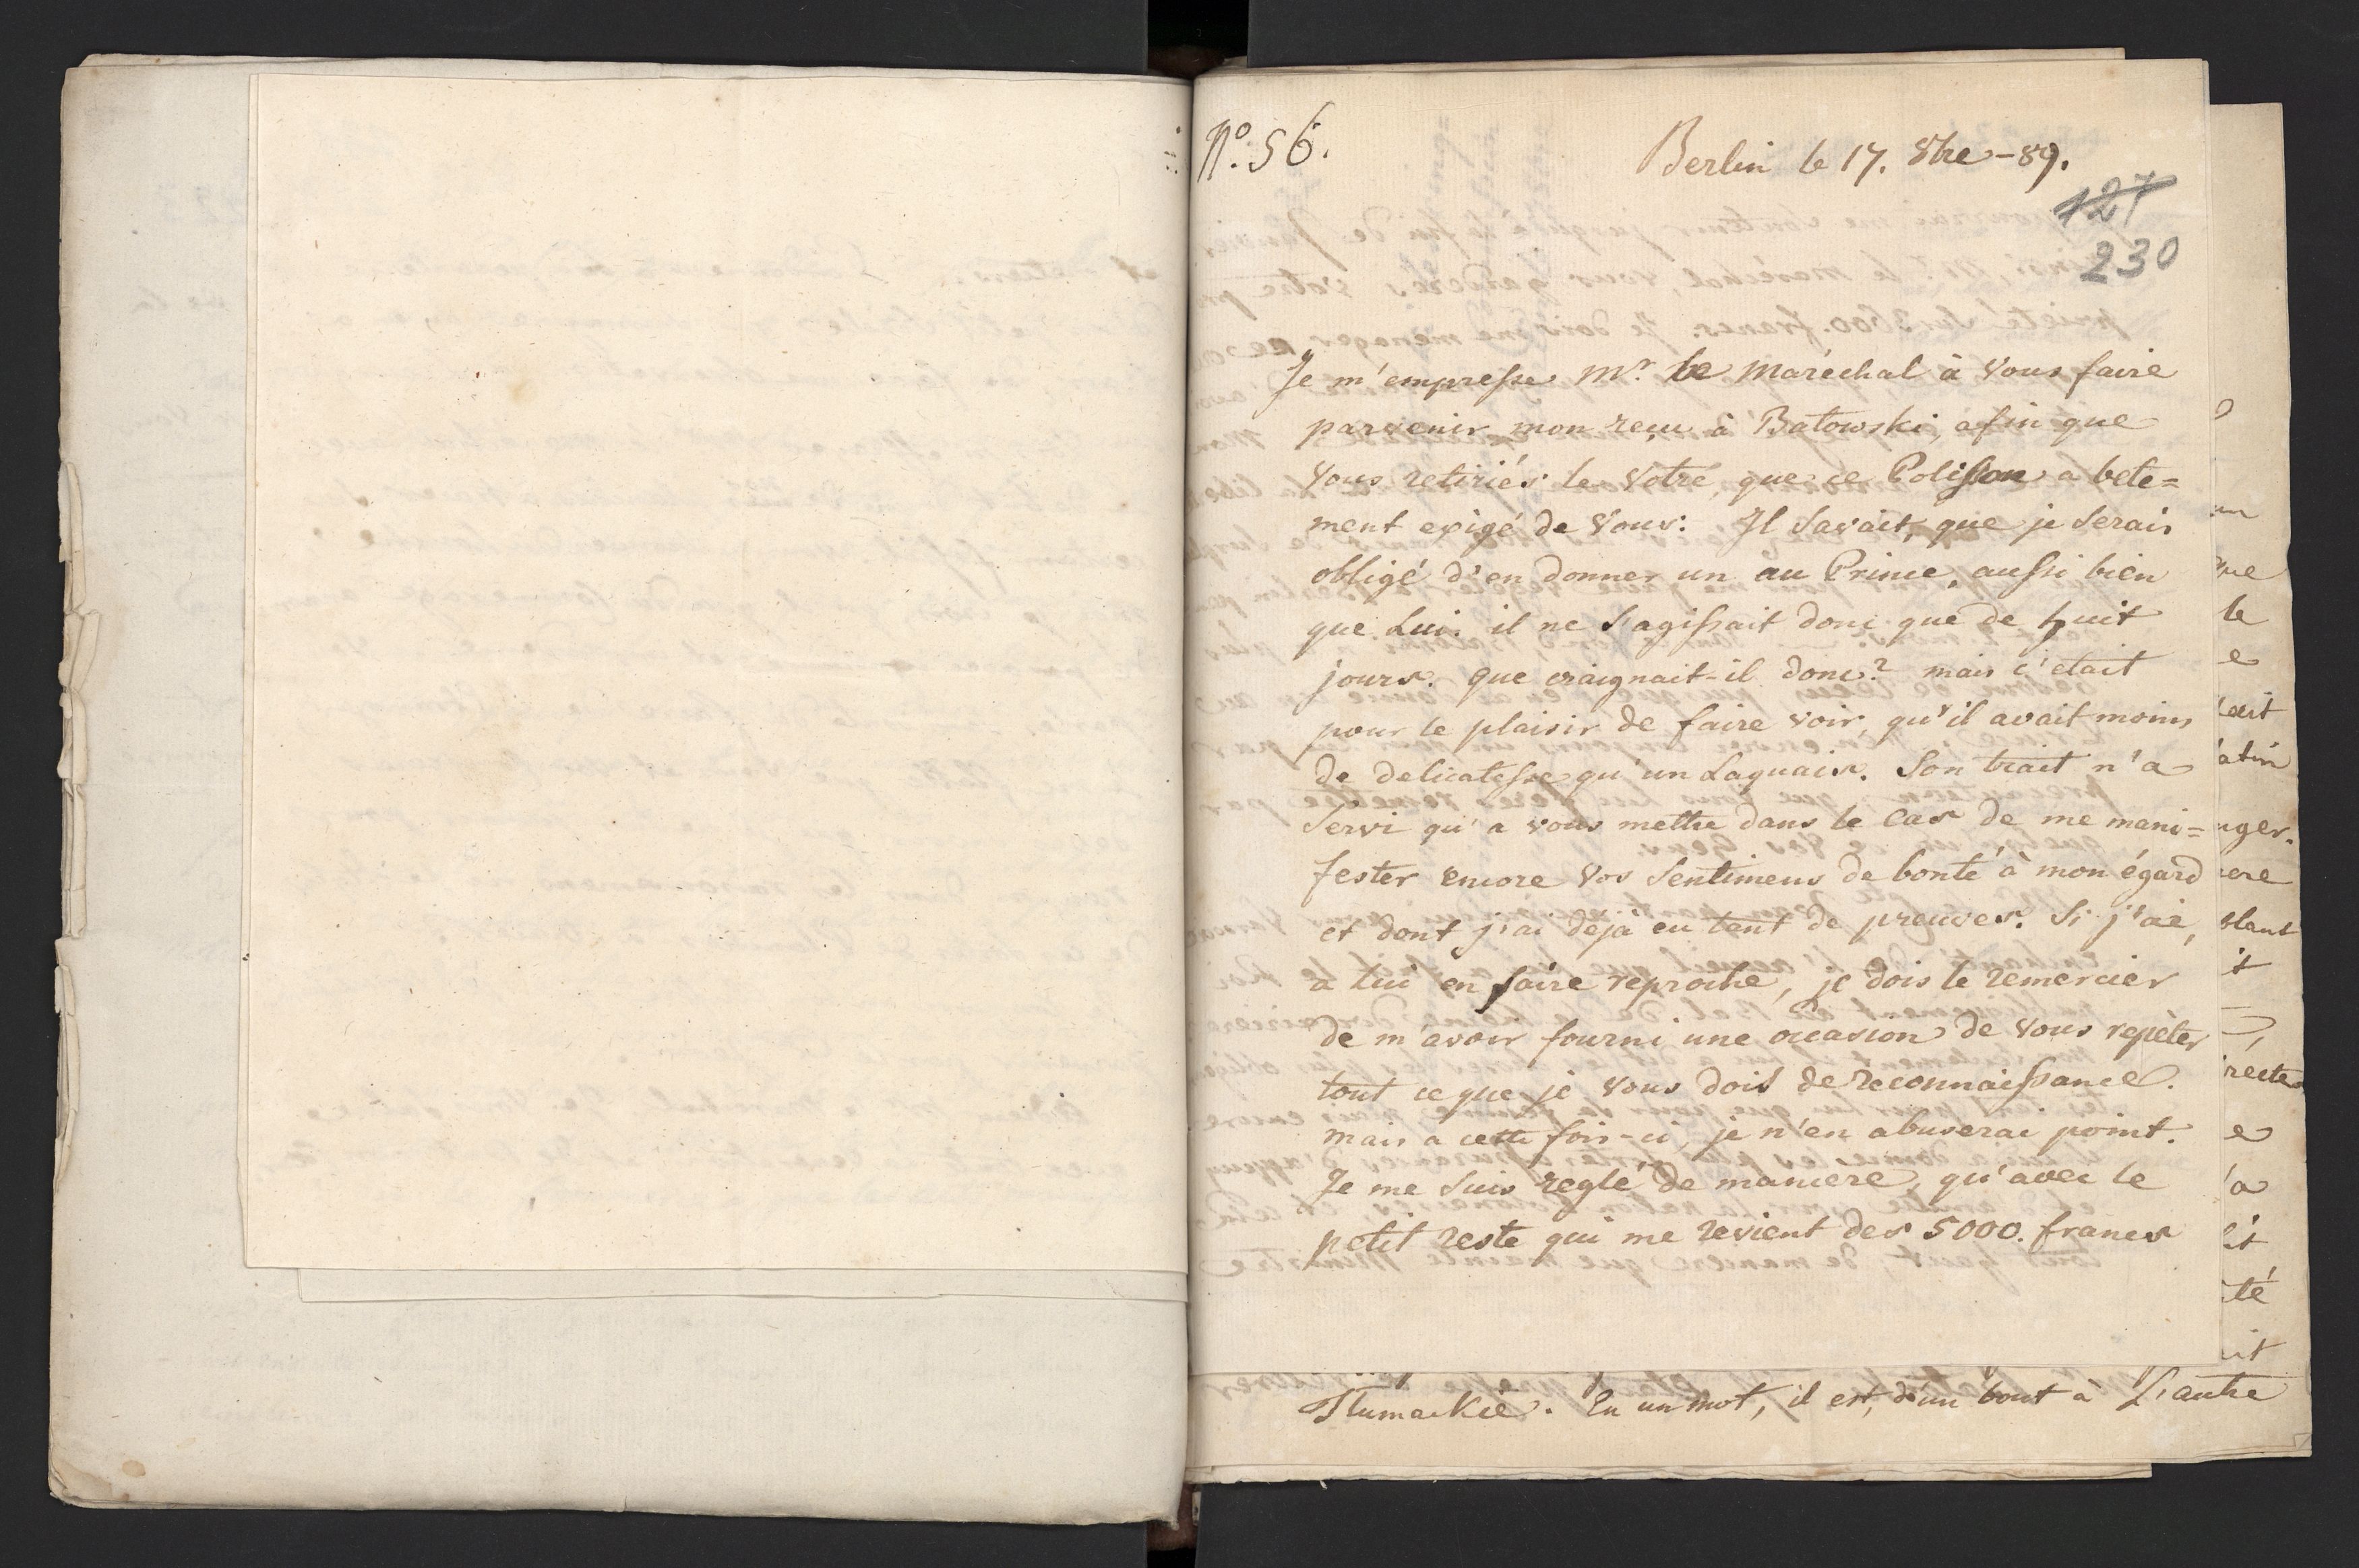 N.º 56.
Berlin le 17. 8bre - 89.
127
230
Je m'empresse Mr. le Maréchal à vous faire
parvenir mon reçu à Batowski, afin que
vous retiriés le votre, que ce Polisson a bete=
ment exigé de vous. Il savait, que je serais
obligé d'en donner un au Prince, aussi bien
que Lui. il ne s'agissait donc que de huit
jours. que craignait-il donc? mais c'etait
pour le plaisir de faire voir, qu'il avait moins
de delicatesse qu'un Laquais. Son trait n'a
servi qu'a vous mettre dans le cas de me mani=
fester encore vos sentimens de bonté à mon égard
et dont j'ai déjà eu tant de preuves. Si j'ai,
a lui en faire reproche, je dois le remercier
de m'avoir fourni une occasion de vous repéter
tout ce que je vous dois de reconnaissance.
mais a cette fois-ci, je n'en abuserai point.
Je me suis reglé de maniere, qu'avec le
petit reste qui me revient des 5000. francs
Tlumackie. En un mot, il est, d'un bout à L'autre